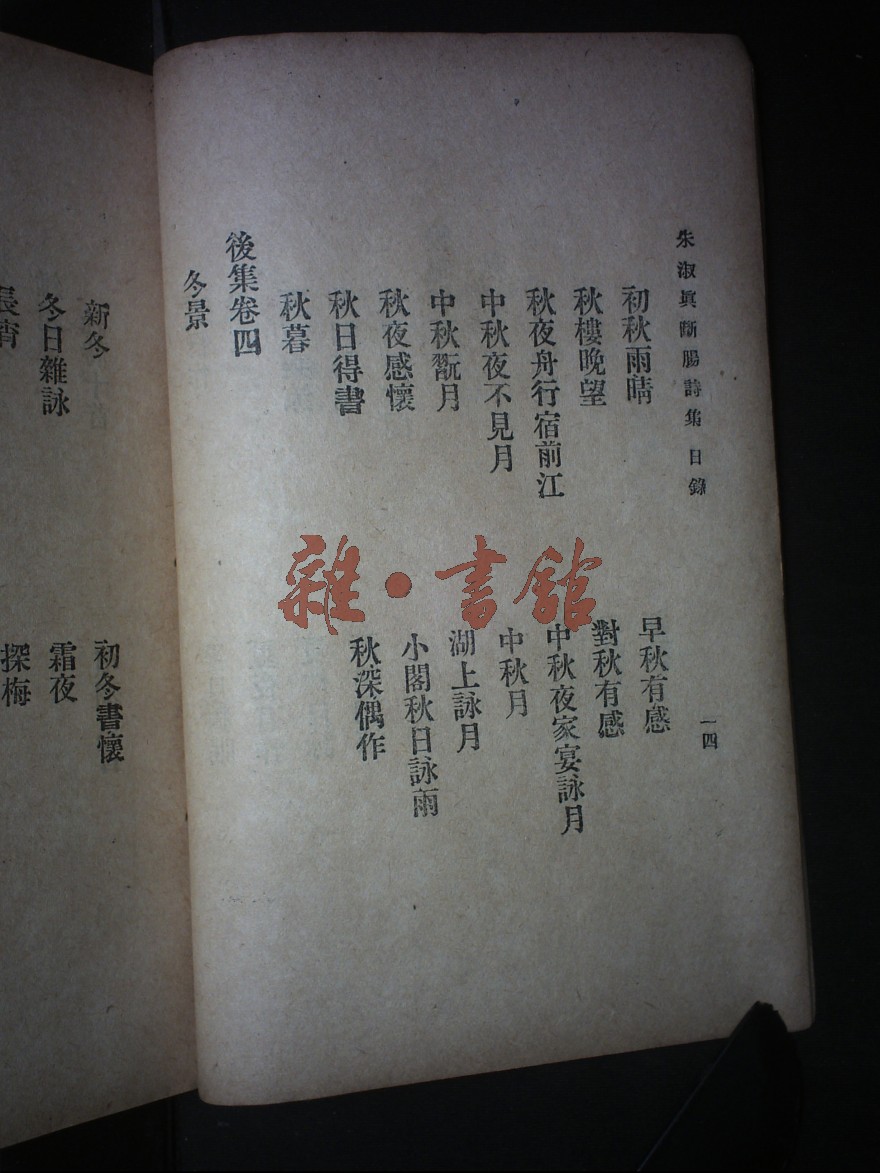 朱淑眞斷腸詩集 目錄
一四
初秋雨晴
早秋有感
秋樓晚望
對秋有感
秋夜舟行宿前江
中秋夜家宴詠月
中秋夜不見月
中秋月
中秋翫月
湖上詠月
秋夜感懷
小閣秋日詠雨
秋日得書
秋深偶作
秋暮
後集卷四
冬景
新冬
初冬書懷
冬日雜詠
霜夜
長宵
探梅
雜·書舘